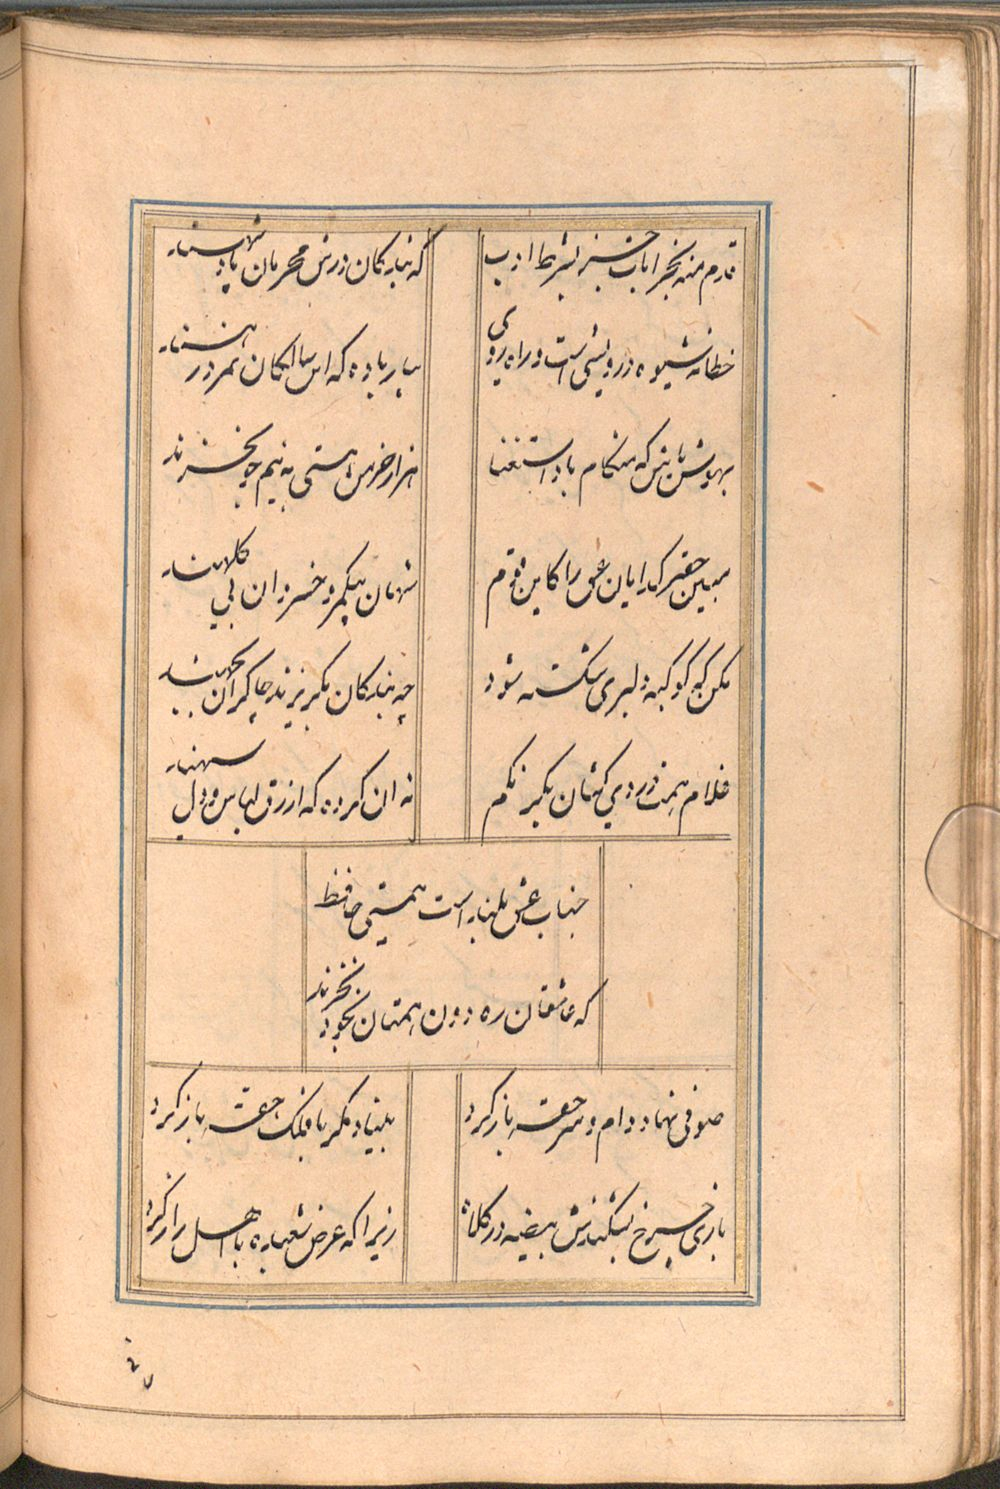 قدم منه بخرابات جز بشرط ادب
که بندگان درش محرمان پادشهند
خطاست شیوه درویشی است و راه روی
بیار باده که این سالکان نمرد رهند
بهوش باش که هنگام باد استغنا
هزار خرمن هستی به نیم جو نخرند
مبین حقیر گدایان عشق را کاین قوم
شهان بی کمر و خسروان بی کلهند
مکن که کوکبه دلبری شکسته شود
چو بندگان بگریزند چاکران بجهند
غلام همت دردی کشان یکرنگم
نه آن گروه که ازرق لباس و دل سیهند
جناب عشق بلند است همتی حافظ
که عاشقان ره دون همتان بخود نخرند
صوفی نهاد دام و سر حقه باز کرد
بنیاد مکر با فلک حقه باز کرد
بازی چرخ بشکندش بیضه در کلاه
زیرا که عرض شعبده با اهل راز کرد